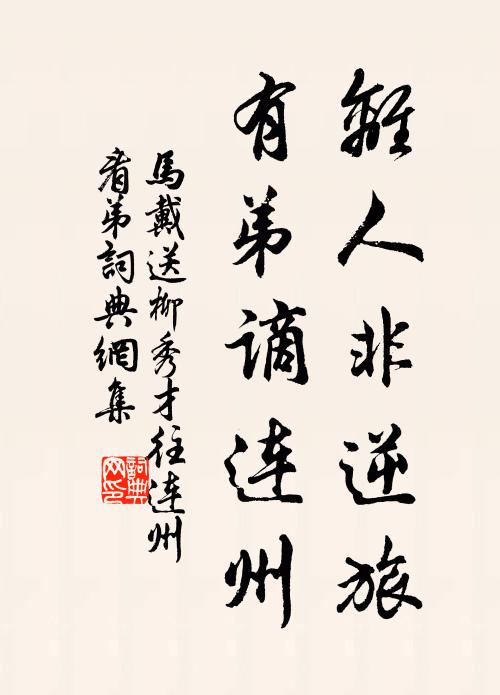 離人非逆旅
有弟謫連州
馬戴送柳秀才往連州
看弟詞典網集
詞典网印